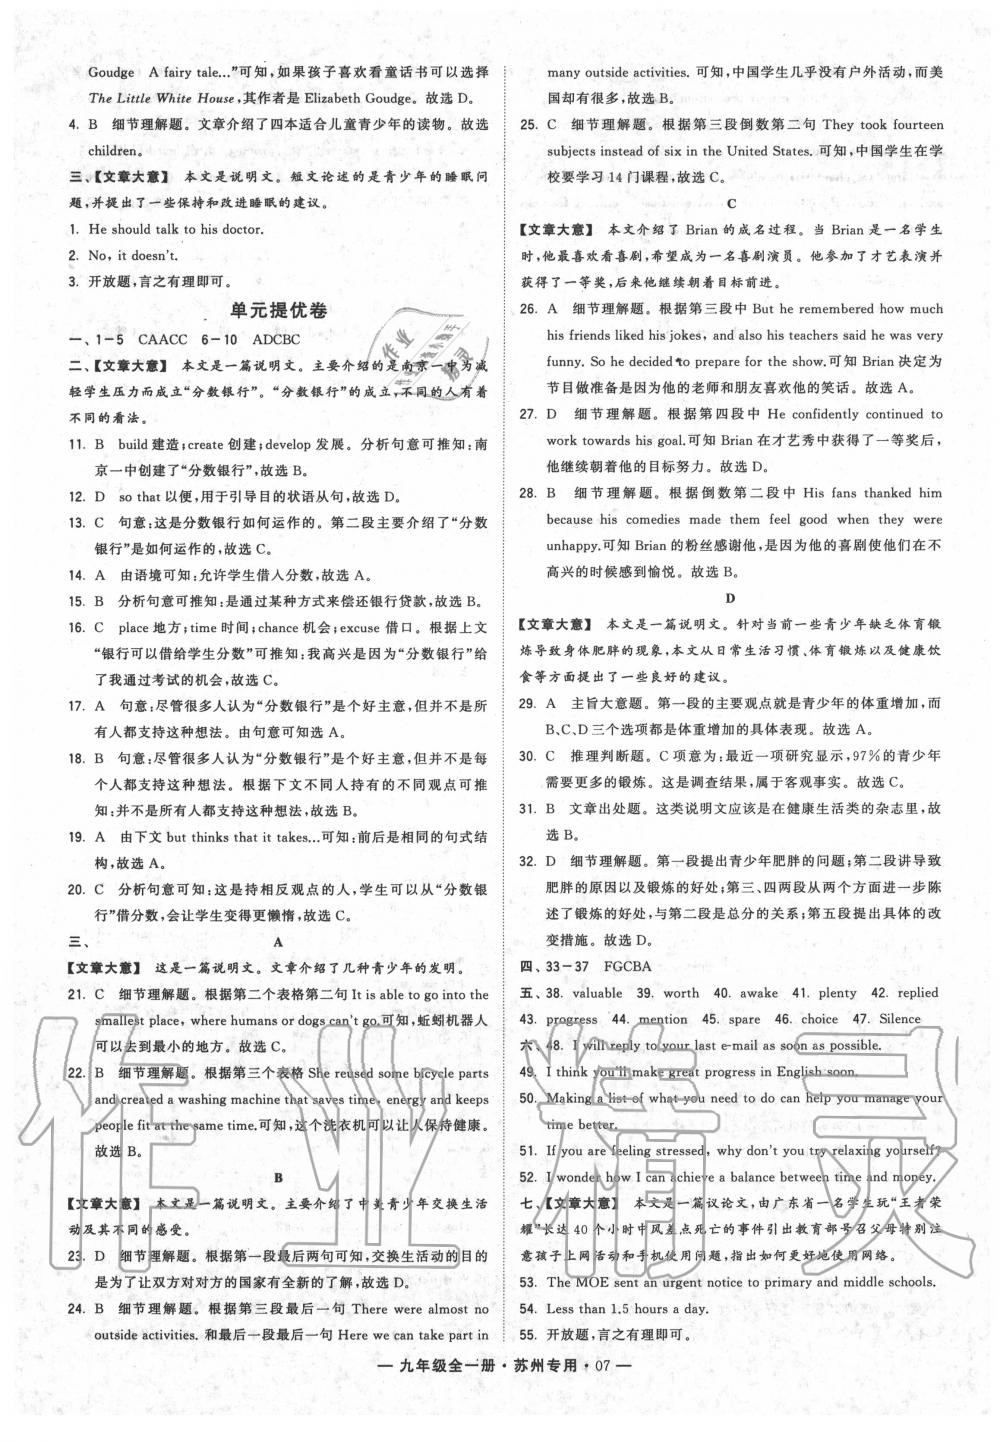 Goudge　A fairy tale…”可知,如果孩子喜欢看童话书可以选择
The Little White House,其作者是 Elizabeth Goudge。故选 D。
4. B　细节理解题。文章介绍了四本适合儿童青少年的读物。故选
children。
三、【文章大意】　本文是说明文。短文论述的是青少年的睡眠问
题,并提出了一些保持和改进睡眠的建议。
1. He should talk to his doctor.
2. No, it doesn't.
3. 开放题,言之有理即可。
单元提优卷
一、1－5　CAACC　6－10　ADCBC
二、【文章大意】　本文是一篇说明文。主要介绍的是南京一中为减
轻学生压力而成立“分数银行”。“分数银行”的成立,不同的人有着
不同的看法。
11. B　build 建造;create 创建;develop 发展。分析句意可推知:南
京一中创建了“分数银行”,故选 B。
12. D　so that 以便,用于引导目的状语从句,故选 D。
13. C　句意:这是分数银行如何运作的。第二段主要介绍了“分数
银行”是如何运作的,故选 C。
14. A　由语境可知:允许学生借入分数,故选 A。
15. B　分析句意可推知:是通过某种方式来偿还银行贷款,故选 B。
16. C　place 地方;time 时间;chance 机会;excuse 借口。根据上文
“银行可以借给学生分数”可推知:我高兴是因为“分数银行”给
了我通过考试的机会,故选 C。
17. A　句意:尽管很多人认为“分数银行”是个好主意,但并不是所
有人都支持这种想法。由句意可知选 A。
18. B　句意:尽管很多人认为“分数银行”是个好主意,但并不是每
个人都支持这种想法。根据下文不同人持有的不同观点可推
知:并不是所有人都支持这种想法,故选 B。
19. A　由下文 but thinks that it takes…可知:前后是相同的句式结
构,故选 A。
20. C　分析句意可知,这是持相反观点的人,学生可以从“分数银
行”借分数,会让学生变得更懒惰,故选 C。
三、　A
【文章大意】　这是一篇说明文。文章介绍了几种青少年的发明。
21. C　细节理解题。根据第二个表格第二句 It is able to go into the
smallest place, where humans or dogs can't go.可知,蚯蚓机器人
可以去到最小的地方。故选 C。
22. B　细节理解题。根据第三个表格 She reused some bicycle parts
and created a washing machine that saves time, energy and keeps
people fit at the same time.可知,这个洗衣机可以让人保持健康。
故选 B。
B
【文章大意】　本文是一篇说明文。主要介绍了中美青少年交换生活
动及其不同的感受。
23. D　细节理解题。根据第一段最后两句可知,交换生活动的目的
是为了让双方对对方的国家有全新的了解,故选 D。
24. B　细节理解题。根据第三段最后一句 There were almost no
outside activities. 和最后一段最后一句 Here we can take part in
many outside activities. 可知,中国学生几乎没有户外活动,而美
国却有很多,故选 B。
25. C　细节理解题。根据第三段倒数第二句 They took fourteen
subjects instead of six in the United States. 可知,中国学生在学
校要学习 14 门课程,故选 C。
C
【文章大意】　本文介绍了 Brian 的成名过程。当 Brian 是一名学生
时,他最喜欢看喜剧,希望成为一名喜剧演员。他参加了才艺表演并
获得了一等奖,后他继续朝着目标前进。
26. A　细节理解题。根据第三段中 But he remembered how much
his friends liked his jokes, and also his teachers said he was very
funny. So he decided to prepare for the show.可知 Brian 决定为
节目做准备是因为他的老师和朋友喜欢他的笑话。故选 A。
27. D　细节理解题。根据第四段中 He confidently continued to
work towards his goal.可知 Brian 在才艺秀中获得了一等奖后,
他继续朝着他的目标努力。故选 D。
28. B　细节理解题。根据倒数第二段中 His fans thanked him
because his comedies made them feel good when they were
unhappy.可知 Brian 的粉丝感谢他,是因为他的喜剧使他们在不
高兴的时候感到愉悦。故选 B。
D
【文章大意】　本文是一篇说明文。针对当前一些青少年缺乏体育锻
炼导致身体肥胖的现象,本文从日常生活习惯、体育锻炼以及健康饮
食等方面提出了一些良好的建议。
29. A　主旨大意题。第一段的主要观点就是青少年的体重增加,而
B、C、D三个选项都是体重增加的具体表现。故选 A。
30. C　推理判断题。C 项意为:最近一项研究显示,97%的青少年
需要更多的锻炼。这是调查结果,属于客观事实。故选 C。
31. B　文章出处题。这类说明文应该是在健康生活类的杂志里,故
选 B。
32. D　细节理解题。第一段提出青少年肥胖的问题;第二段讲导致
肥胖的原因以及锻炼的好处;第三、四两段从两个方面进一步陈
述了锻炼的好处,与第二段是总分的关系;第五段提出具体的改
变措施。故选 D。
四、33－37　FGCBA
五、38. valuable　39. worth　40. awake　41. plenty　42. replied
43. progress　44. mention　45. spare　46. choice　47. Silence
六、48. I will reply to your last e-mail as soon as possible.
49. I think you'll make great progress in English soon.
50. Making a list of what you need to do can help you manage your
time better.
51. If you are feeling stressed, why don't you try relaxing yourself?
52. I wonder how I can achieve a balance between time and money.
七、【文章大意】　本文是一篇议论文,由广东省一名学生玩“王者荣
耀”长达 40 个小时中风差点死亡的事件引出教育部号召父母特别注
意孩子上网活动和手机使用问题,指出如何更好地使用网络。
53. The MOE sent an urgent notice to primary and middle schools.
54. Less than 1.5 hours a day.
55. 开放题,言之有理即可。
— 九年级全一册·苏州专用·07 —
作业精灵